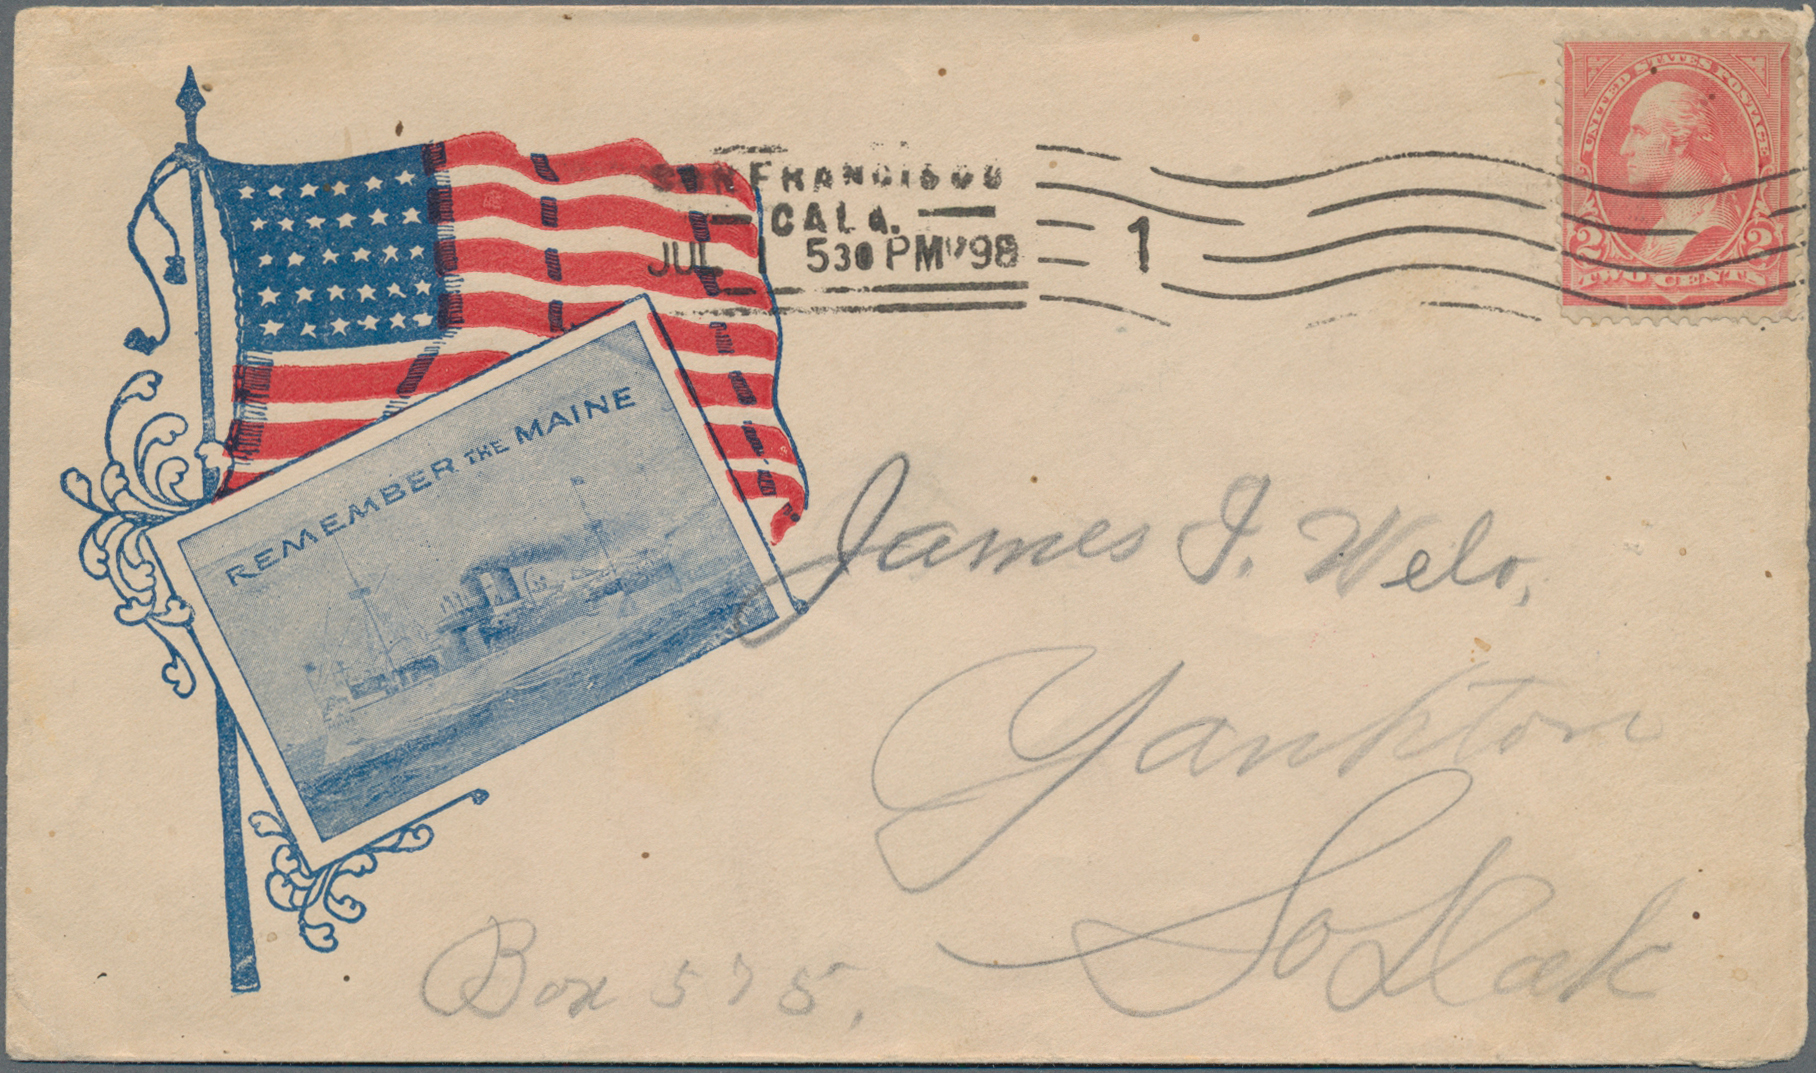 UNITED STATES POSTAGE
2 2
TWO CENTS
SAN FRANCISCO
CALA.
JUL 1 530 PM '98
1
REMEMBER THE MAINE
James I. Welo,
Yankton
So Dak
Box 575.